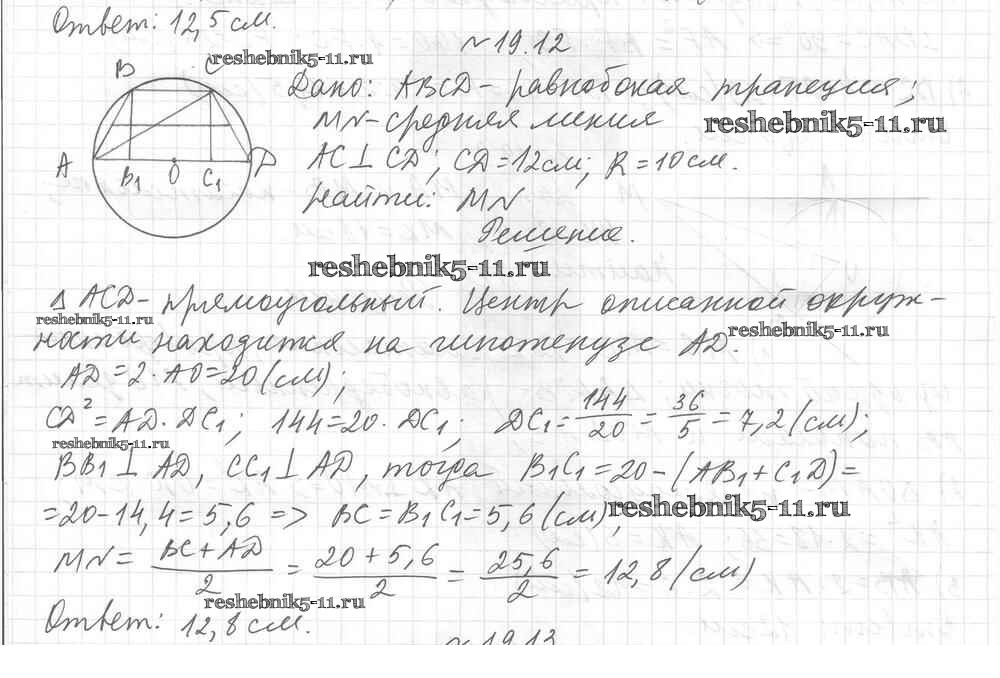 Ответ: 12,5 см.
№19.12
reshebnik5-11.ru
B C
Дано: ABCD - равнобокая трапеция;
MN - средняя линия
reshebnik5-11.ru
AC ⊥ CD; CD = 12 см; R = 10 см.
A B₁ O C₁ D
Найти: MN
Решение.
reshebnik5-11.ru
Δ ACD - прямоугольный. Центр описанной окруж-
reshebnik5-11.ru
ности находится на гипотенузе AD.
reshebnik5-11.ru
AD = 2·AO = 20 (см);
CD² = AD·DC₁; 144 = 20·DC₁; DC₁ = 144/20 = 36/5 = 7,2 (см);
reshebnik5-11.ru
BB₁ ⊥ AD, CC₁ ⊥ AD, тогда B₁C₁ = 20 - (AB₁ + C₁D) =
= 20 - 14,4 = 5,6 => BC = B₁C₁ = 5,6 (см),
reshebnik5-11.ru
MN = (BC + AD)/2 = (20 + 5,6)/2 = 25,6/2 = 12,8 (см)
reshebnik5-11.ru
Ответ: 12,8 см.
№19.13